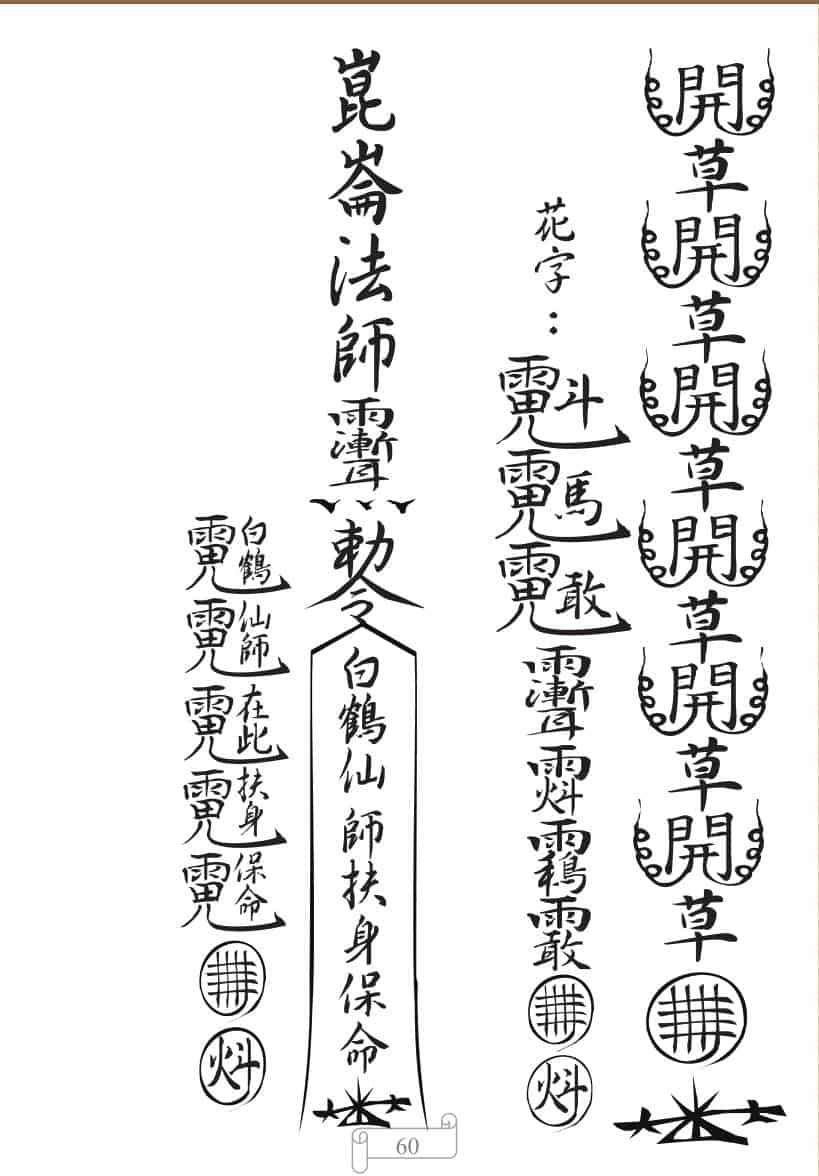 開草開草開草開草開草開草
花字：斗馬敢炓
崑崙法師勅令白鶴仙師扶身保命
白鶴仙師在此扶身保命炓
60